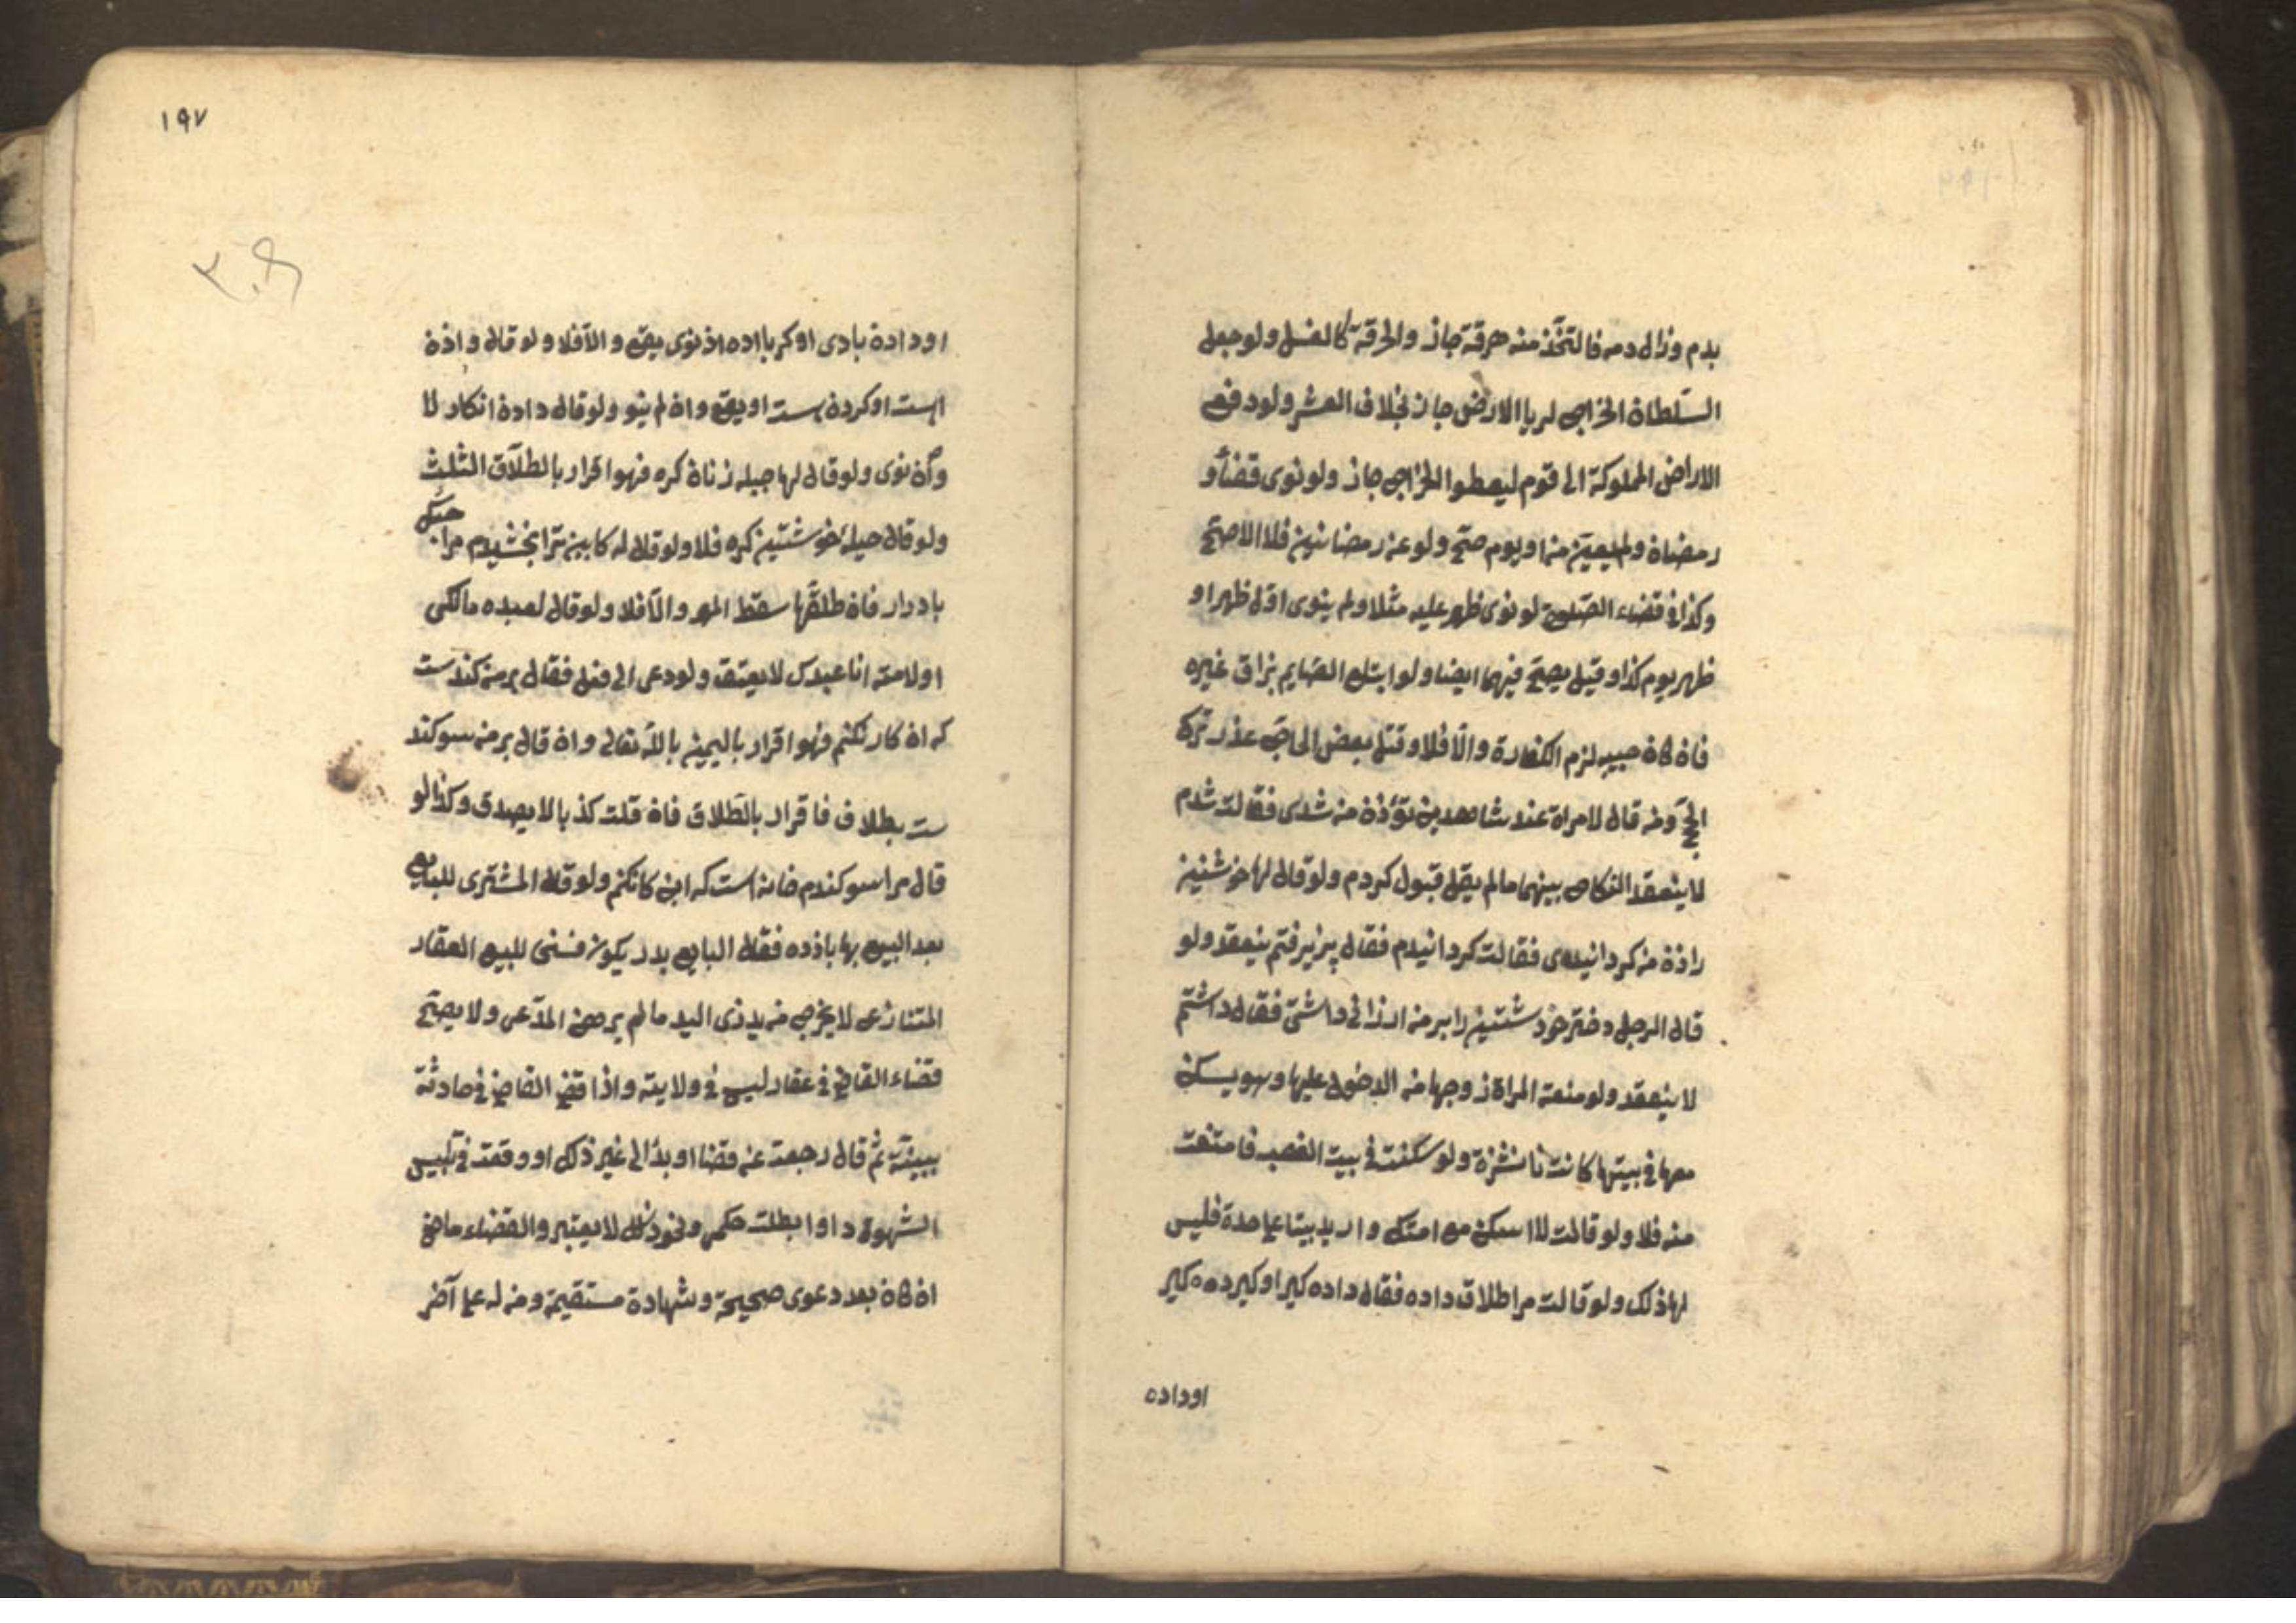 بدم وزال دمه فالتخذ منه مرقة جاز والحرقة كالغسل ولو جعل
السلطان الخراج لرب الارض جاز بخلاف العشر ولو دفع
الاراض المملوكة الى قوم ليعطوا الخراج جاز ولو نوى قضاء
رمضان ولم يعين منه او يوم صح ولو عن رمضانين فلا الاصح
وكذا فى قضاء الصلوة لو نوى ظهر عليه مثلا ولم ينوى اول ظهر او
ظهر يوم كذا وقيل يصح فيهما ايضا ولو ابتلع الصايم بزاق غيره
فان كان حبيبه لزم الكفارة والا فلا وقتل بعض الحاج عذر ترك
الحج ومن قال لامراة عند شاهدين تو زن من شدى فقالت شدم
لا ينعقد النكاح بينهما مالم يقل قبول كردم ولو قال لها خوشتنين
را زن من كردانيدى فقالت كردانيدم فقال پزيرفتم ينعقد ولو
قال الرجل دختر خود شتنين را بر من ارزانى داشتى فقال داشتم
لا ينعقد ولو منعت المراة زوجها من الدخول عليها وهو يسكن
معها فى بيتها كانت ناشزة ولو سكنت فى بيت الغصب فامتنعت
منه فلا ولو قالت لا اسكن مع امتك واريد بيتا على حدة فليس
لها ذلك ولو قالت مرا طلاق داده فقال داده كير او كيرده كير
اوداده
١٩٧
اوداده بادى او كر باده ان نوى يقع والا فلا ولو قال داده
است او كرده است او يقع وان لم ينو ولو قال داده انكار لا
وان نوى ولو قال لها حيله زنان كره فهو اقرار بالطلاق الثلث
ولو قال حيله خوشتنين كره فلا ولو قال له كابين ترا بخشيدم مرا چنك
بازدار فان طلقها سقط المهر والا فلا ولو قال لعبده مالكى
او لامته انا عبدك لا يعتق ولو دعى الى فعل فقال بر من كندست
كه ان كار نكنم فهو اقرار باليمين بالله تعالى وان قال بر من سوكند
ست بطلاق فاقرار بالطلاق فان قلت كذبا لا يصدق وكذا لو
قال مرا سوكندم خانه است كه اين كار نكنم ولو قال المشترى للبايع
بعد البيع بها باذده فقال البايع بدر يكون فسخى للبيع العقار
المتنازع لا يخرج من يد ذى اليد مالم يرهن المدعى ولا يصح
قضاء القاضى فى عقار ليس فى ولايته واذا قضى القاضى فى حادثة
ببينة ثم قال رجعت عن قضا او بدا لى غير ذلك او وقعت فى تلبيس
الشهود او ابطلت حكمى ونحو ذلك لا يعتبر والقضاء ماض
ان كان بعد دعوى صحيحة وشهادة مستقيمة ومن له على آخر